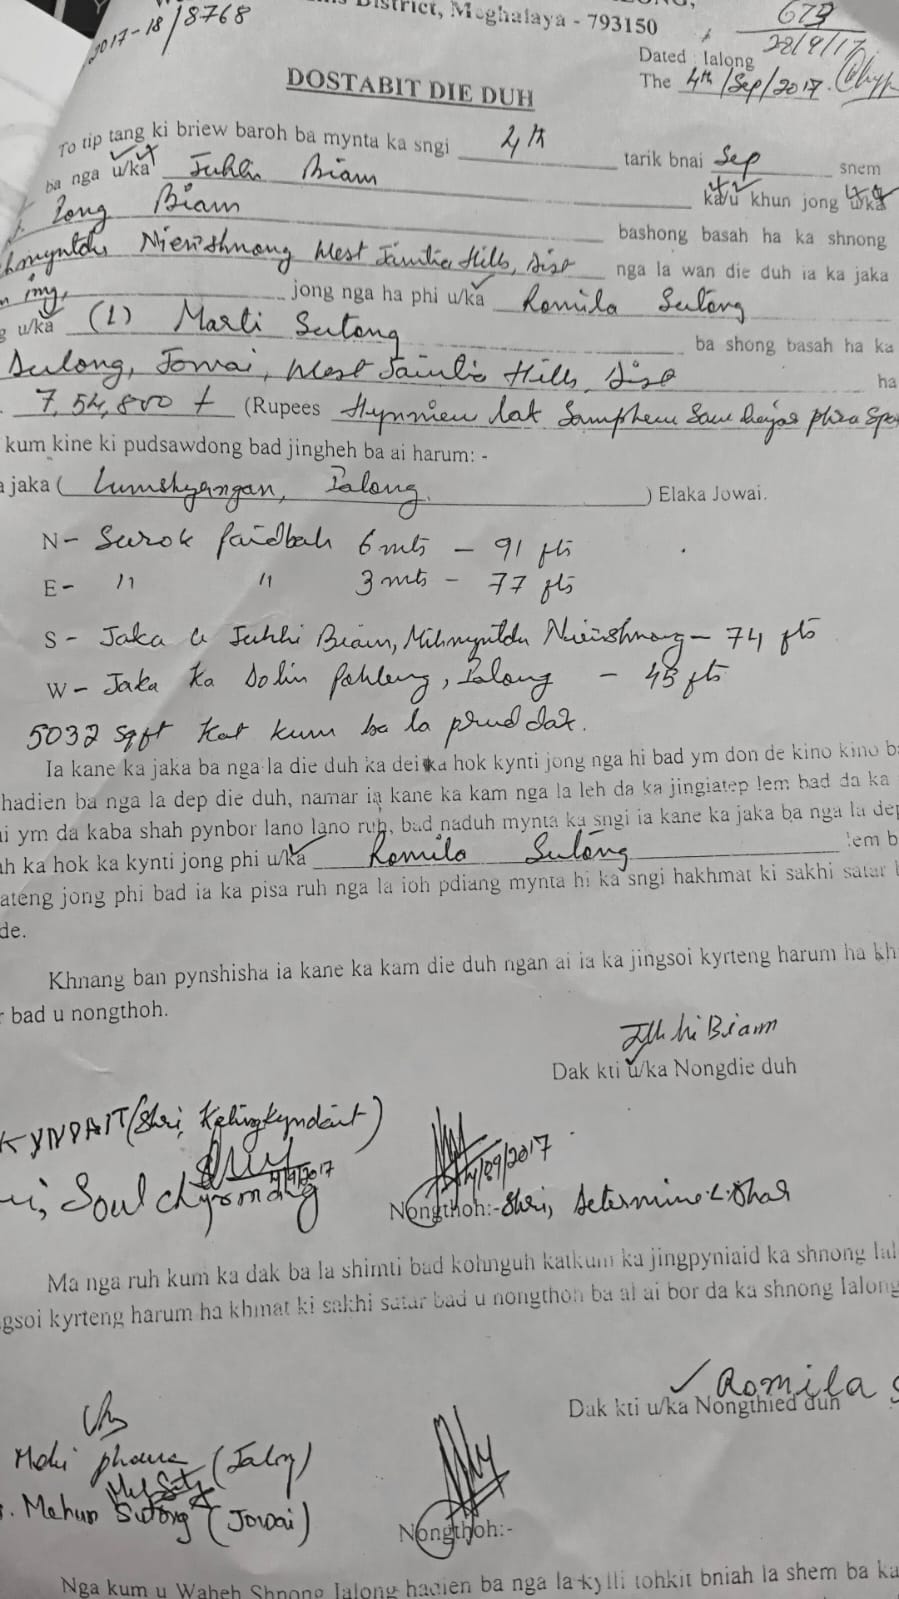 District, Meghalaya - 793150
2017-18/8768
673
28/9/17
Dated Ialong
The 4th/Sep/2017.
DOSTABIT DIE DUH
To tip tang ki briew baroh ba mynta ka sngi 4th tarik bnai Sep snem
ba nga u/ka Juhhi Biam ka/u khun jong u/ka
Long Biam bashong basah ha ka shnong
Niewshnong West Jaintia Hills, Dist nga la wan die duh ia ka jaka
jong nga ha phi u/ka Romila Sutong
u/ka (L) Marli Sutong ba shong basah ha ka
Dulong, Jowai, West Jaintia Hills, Dist ha
7,54,800 (Rupees Hynniew lak Sanphew Saw hajar phra
kum kine ki pudsawdong bad jingheh ba ai harum: -
jaka ( Lumshyangan, Ialong. ) Elaka Jowai.
N- Surok paidbah 6 mts - 91 fts
E- " " 3 mts - 77 fts
S- Jaka u Juhhi Biam, Mihmyntdu Niewshnong - 74 fts
W- Jaka ka Dolin Pohleng, Ialong - 45 fts
5032 sqft kat kum ba la prud dak.
Ia kane ka jaka ba nga la die duh ka dei ka hok kynti jong nga hi bad ym don de kino kino
hadien ba nga la dep die duh, namar ia kane ka kam nga la leh da ka jingiatep lem bad da ka
ym da kaba shah pynbor lano lano ruh, bad naduh mynta ka sngi ia kane ka jaka ba nga la dep
ka hok ka kynti jong phi u/ka Romila Sutong lem
ateng jong phi bad ia ka pisa ruh nga la ioh pdiang mynta hi ka sngi hakhmat ki sakhi satar
de.
Khnang ban pynshisha ia kane ka kam die duh ngan ai ia ka jingsoi kyrteng harum ha
bad u nongthoh.
Juhhi Biam
Dak kti u/ka Nongdie duh
KYNDAIT (Shri, Kelingkyndait)
4/9/2017
Soul Chyrmang
4/09/2017
Nongthoh:- Shri, Determine L. Dhar
Ma nga ruh kum ka dak ba la shimti bad kohnguh katkum ka jingpyniaid ka shnong
gsoi kyrteng harum ha khmat ki sakhi satar bad u nongthoh ba ai ai bor da ka shnong Ialong
Romila
Dak kti u/ka Nongthied duh
Mohi (Ialong)
Mehun Sutong (Jowai)
Nongthoh:-
Nga kum u Waheh Shnong Ialong hadien ba nga la kylli tohkit bniah la shem ba ka